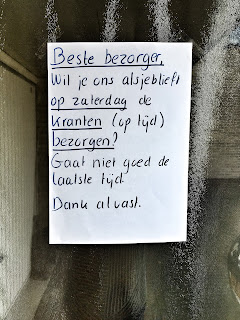 Beste bezorger,
Wil je ons alsjeblieft
op zaterdag de
kranten (op tijd)
bezorgen?
Gaat niet goed de
laatste tijd.
Dank alvast.